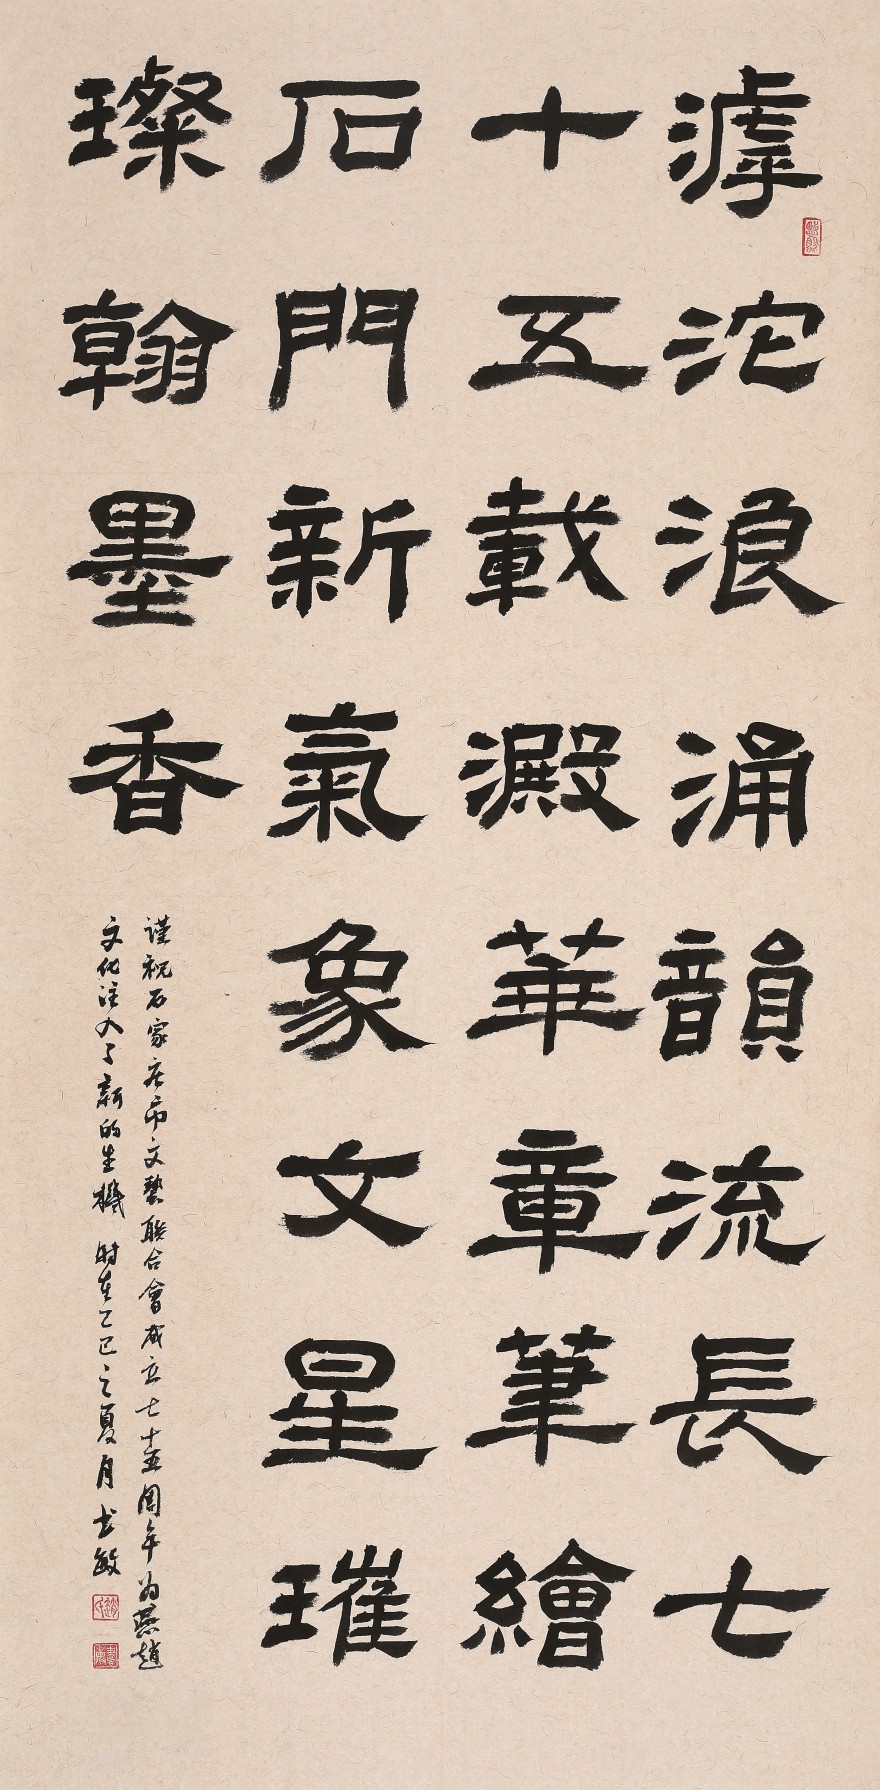 滹沱浪涌韻流長七
十五載澱華章筆繪
石門新氣象文星璀
璨翰墨香
謹祝石家庄市文藝聯合會成立七十五周年为燕趙
文化注入了新的生機 时在乙巳之夏月 书敏